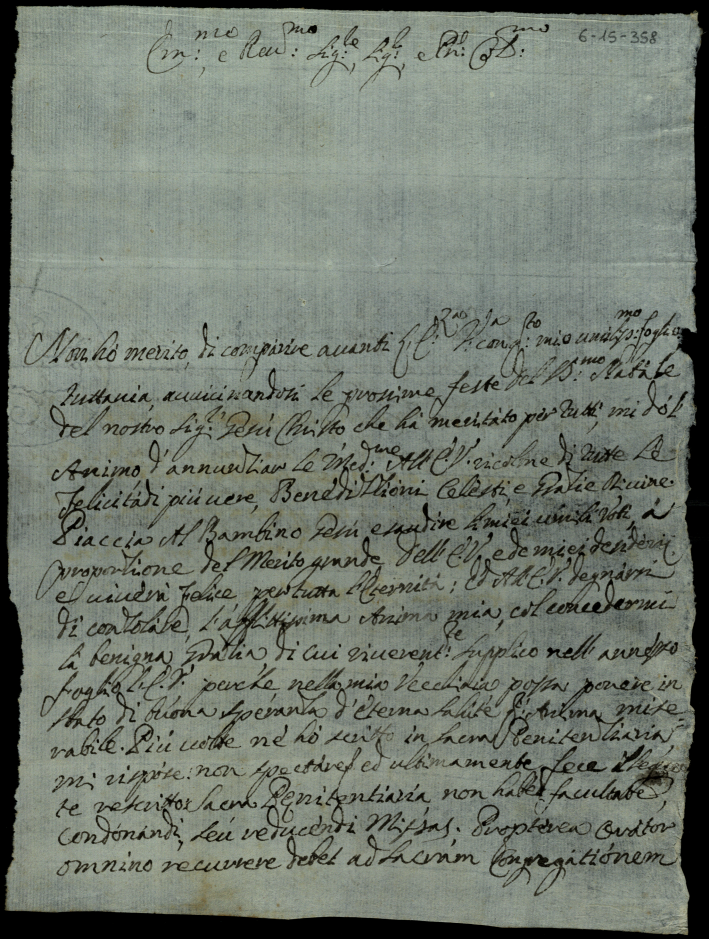 6-15-358
Em:mo, e Reu:mo Sig:re, Sig:r, e Pn: Col:mo
Non hò merito, di comparire auanti l'E: V:ra con q:to mio umiliss:mo foglio.
tuttauia, auuicinandosi le prossime feste del SS:mo Natale
del nostro Sig:r Gesù Christo che hà meritato per tutti, mi dò l'
Animo d'annuntiar le Med:me All'E.V. ricolme di tutte le
felicità di più uere, Benedittioni Celesti, e Gratie Diuine.
Piaccia Al Bambino Gesù esaudire li miei umili Voti, à
proportione del Merito grande, dell'E.V. e de miei desiderij
e uiuerà felice per tutta l'Eternità; ed All'E.V. degnarsi
di consolare, l'afflittissima Anima mia, col concedermi
la benigna, Gratia, di cui riuerent:te supplico nell'annesso
foglio l'E.V. perche, nella mia Vecchiaia possa ponere in
stato di buona speranza d'eterna salute l'Anima mise-
rabile. Più uolte né hò scritto in Sacra Penitentiaria
mi rispose: non spectare; ed ultimamente fece il seguen
te rescritto: Sacra Penitentiaria non habet facultatem
condonandi, seù reducendi Missas. Propterea Orator
omnino recurrere debet ad Sacram Congregationem